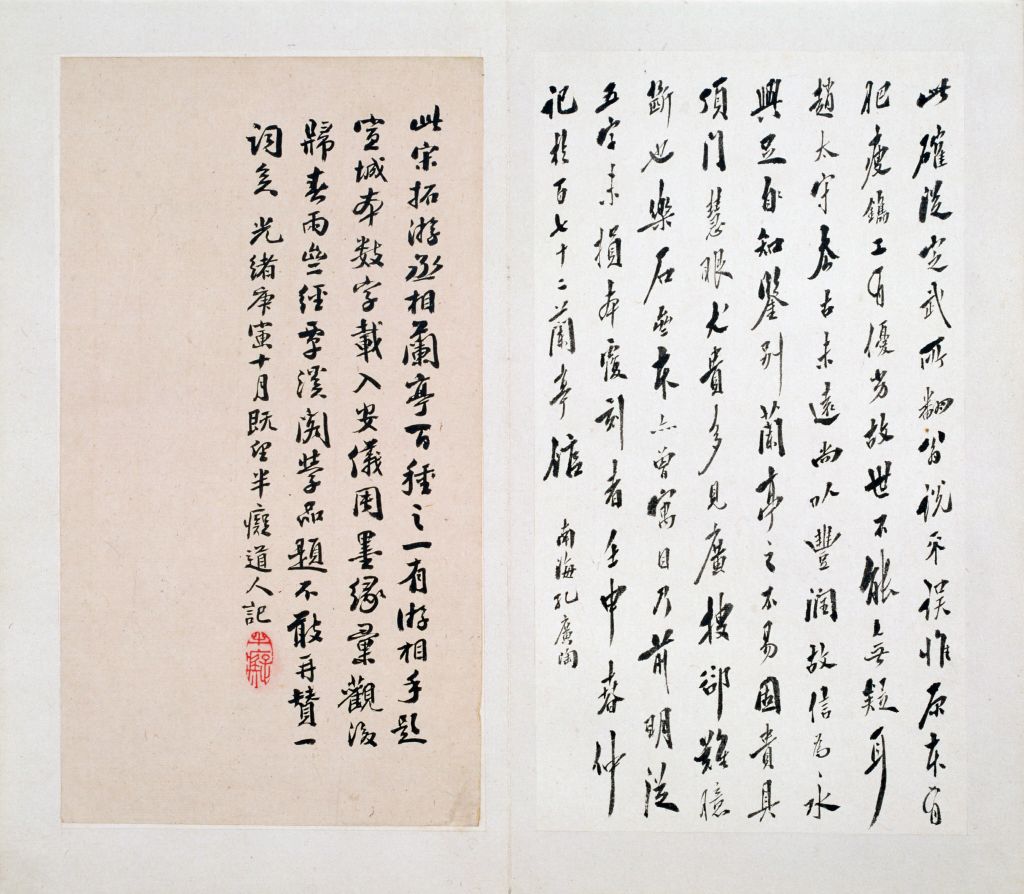 此確從定武所翻翁說不誤惟原本有
肥瘦鐫工有優劣故世不能無疑耳
趙太守去古未遠尚以豐潤故信為永
興足自知鑒別蘭亭之不易固貴具
頂門慧眼尤貴多見廣搜卻難臆
斷也樂石本亦曾寓目乃前明從
五字未損本覆刻者壬申春仲
記於百七十二蘭亭館 南海孔廣陶
此宋拓游丞相蘭亭百種之一有游相手題
宣城本數字載入安儀周墨緣彙觀後
歸春雨經覃溪閣學品題不敢再贊一
詞矣 光緒庚寅十月既望半癡道人記
半癡